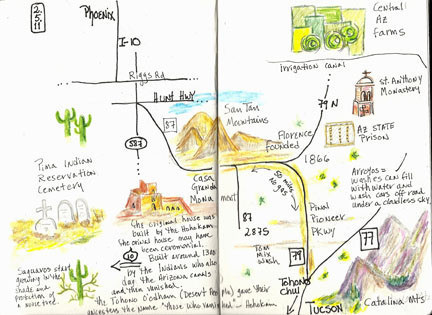 2.
5.
11
Phoenix
I-10
Riggs Rd
Hunt Hwy
87
587
San Tan
Mountains
Central
Az
Farms
Irrigation canal
79 N
St. Anthony
Monastery
Az State
Prison
Florence
Founded
1866
Pima Indian
Reservation
Cemetery
Casa
Grande
Mona.
50 miles
No gas
87
2875
Pinal
Pioneer
Pkwy
Tom
Mix
Wash
79
77
Arroyos =
washes can fill
with water and
wash cars off road
under a cloudless sky
The original house was
built by the Hohokam.
The original house may have
been ceremonial.
Built around 1300
by the Indians who also
dug the Arizona canals
and then vanished.
10
The Tohono O'odham (Desert People) gave their
ancestors the name "those who vanished" - Hohokam
Saguaros start
growing with
shade and
protection of
a nurse tree.
Tohono
Chul
Tucson
Catalina Mts